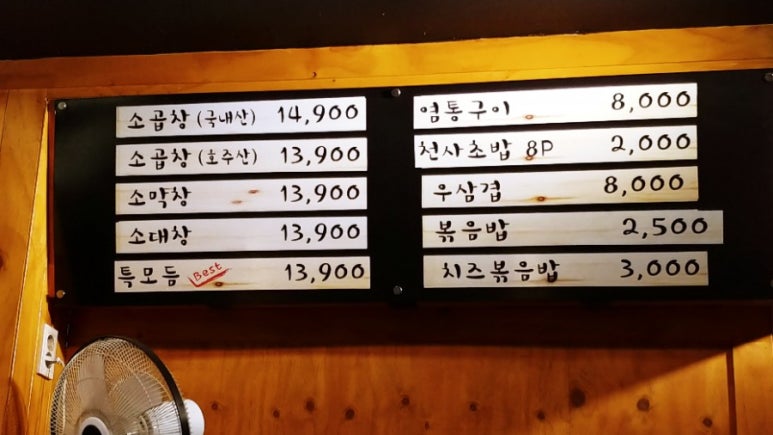 소곱창 (국내산) 14,900
소곱창 (호주산) 13,900
소막창 13,900
소대창 13,900
특모듬 Best 13,900
염통구이 8,000
천사초밥 8P 2,000
우삼겹 8,000
볶음밥 2,500
치즈볶음밥 3,000